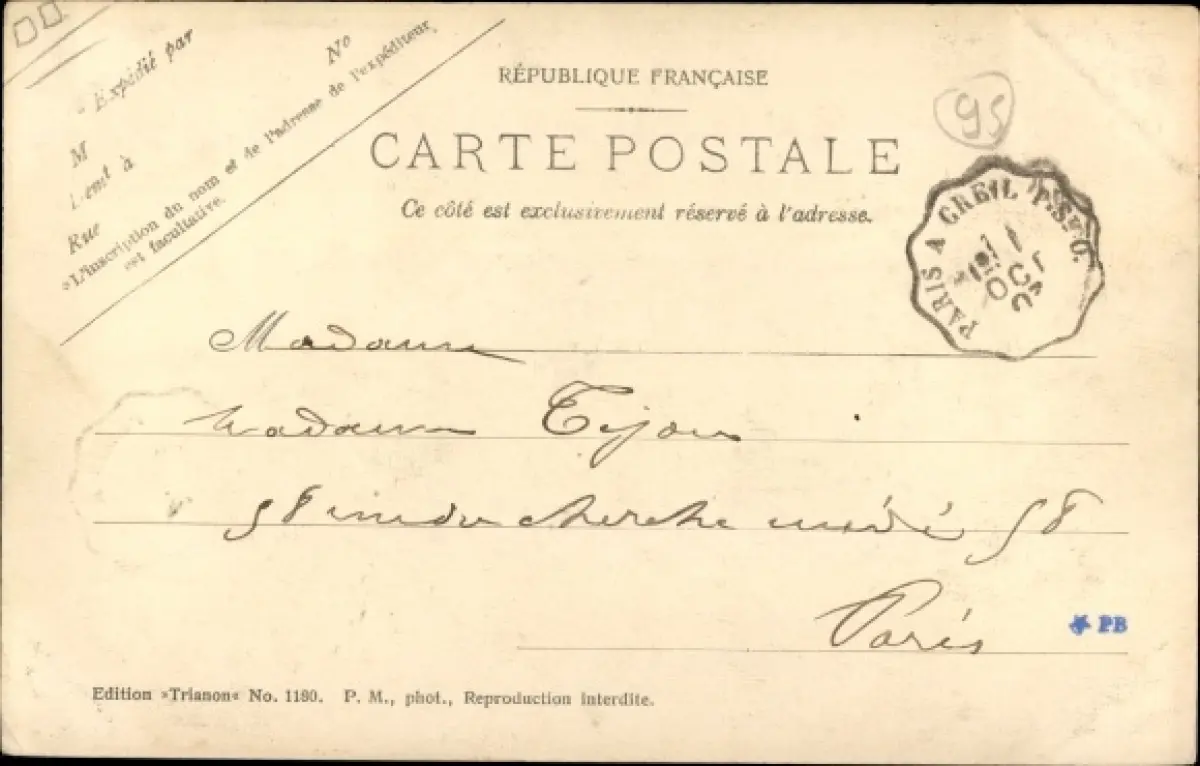 Expédié par
M
Demt à
Rue
No
»L'inscription du nom et de l'adresse de l'expéditeur
est facultative.
RÉPUBLIQUE FRANÇAISE
CARTE POSTALE
Ce côté est exclusivement réservé à l'adresse.
95
PARIS A CREIL P.St O.
Madame
Madame Tijou
58 rue du cherche midi 58
Paris
PB
Edition »Trianon« No. 1180. P. M., phot., Reproduction interdite.